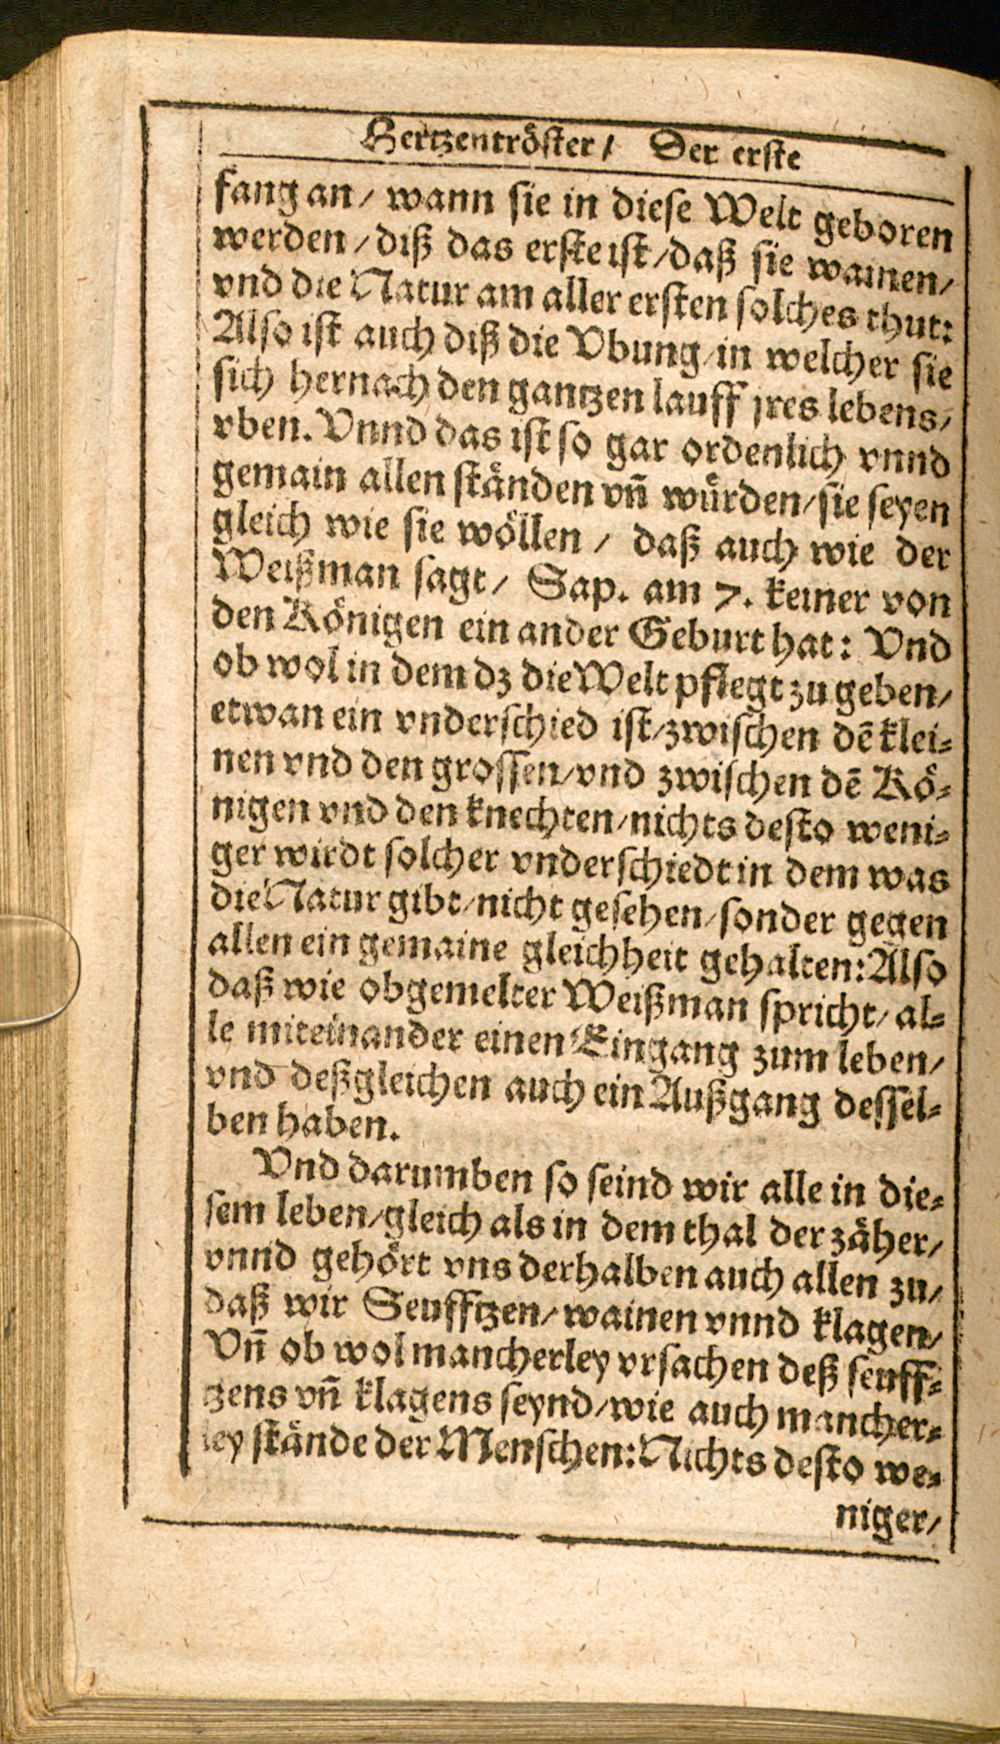 Hertzentröster/ Der erste
fang an/ wann sie in diese Welt geboren
werden/ diß das erste ist/ daß sie wainen/
vnd die Natur am aller ersten solches thut:
Also ist auch diß die Vbung/ in welcher sie
sich hernach den gantzen lauff jres lebens/
vben. Vnnd das ist so gar ordenlich vnnd
gemain allen ständen vñ würden/ sie seyen
gleich wie sie wöllen / daß auch wie der
Weißman sagt/ Sap. am 7. keiner von
den Königen ein ander Geburt hat: Vnd
ob wol in dem dz die Welt pflegt zu geben/
etwan ein vnderschied ist/ zwischen dē klei⸗
nen vnd den grossen/ vnd zwischen dē Kö⸗
nigen vnd den knechten/ nichts desto weni⸗
ger wirdt solcher vnderschiedt in dem was
die Natur gibt/ nicht gesehen/ sonder gegen
allen ein gemaine gleichheit gehalten: Also
daß wie obgemelter Weißman spricht/ al⸗
le miteinander einen Eingang zum leben/
vnd deßgleichen auch ein Außgang dessel⸗
ben haben.
Vnd darumben so seind wir alle in die⸗
sem leben/ gleich als in dem thal der zäher/
vnnd gehört vns derhalben auch allen zu/
daß wir Seufftzen/ wainen vnnd klagen/
Vñ ob wol mancherley vrsachen deß seuff⸗
tzens vñ klagens seynd/ wie auch mancher⸗
ley stände der Menschen: Nichts desto we⸗
niger/